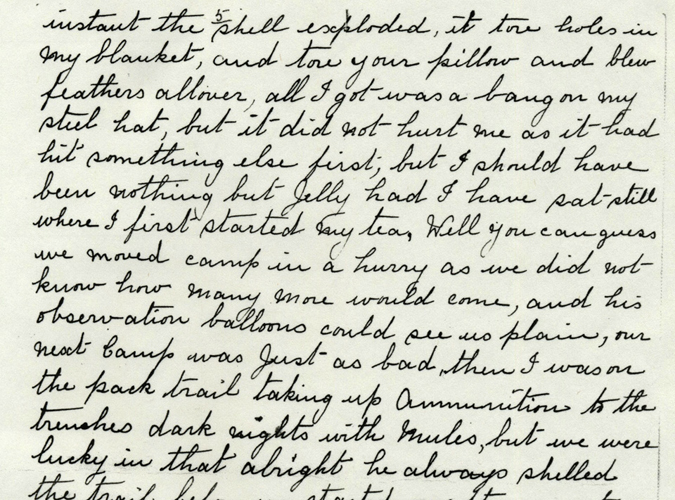 instant the 5 shell exploded, it tore holes in
my blanket, and tore your pillow and blew
feathers allover, all I got was a bang on my
steel hat, but it did not hurt me as it had
hit something else first, but I should have
been nothing but Jelly had I have sat still
where I first started my tea, Well you can guess
we moved camp in a hurry as we did not
know how many more would come, and his
observation balloons could see us plain, our
next Camp was Just as bad, then I was on
the pack trail taking up Ammunition to the
trenches dark nights with Mules, but we were
lucky in that alright he always shelled
the trail